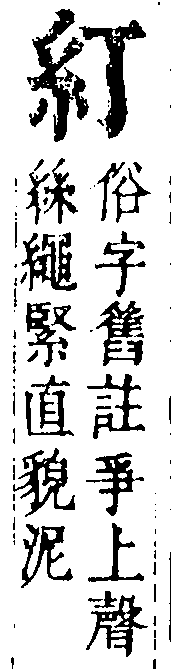 糽
俗字舊註爭上聲
絲繩緊直貌泥